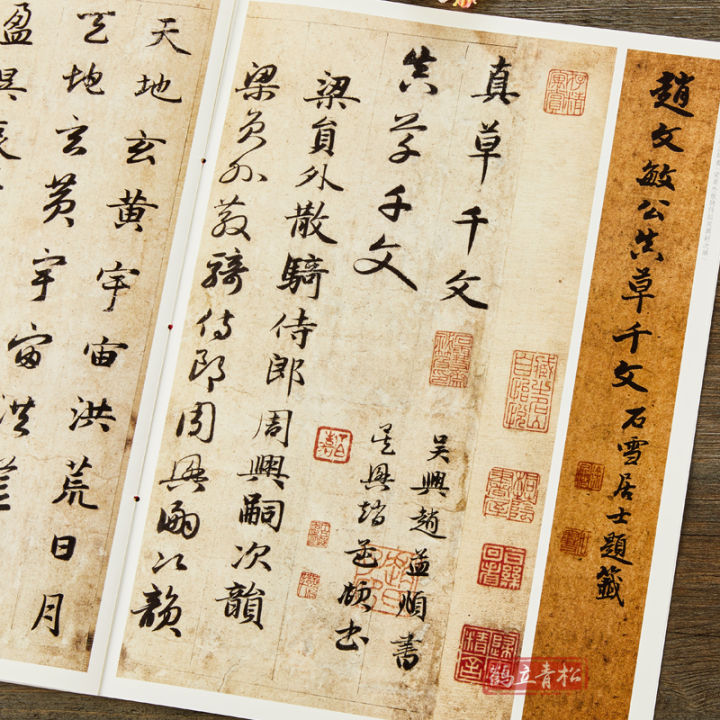 趙文敏公真草千文 石雪居士題籤
真草千文
真草千文
吳興趙孟頫書
吳興趙孟頫書
梁員外散騎侍郎周興嗣次韻
梁員外散騎侍郎周興嗣次韻
天地玄黃宇宙洪荒日月
天地玄黃宇宙洪荒
盈昃
鶴立青松